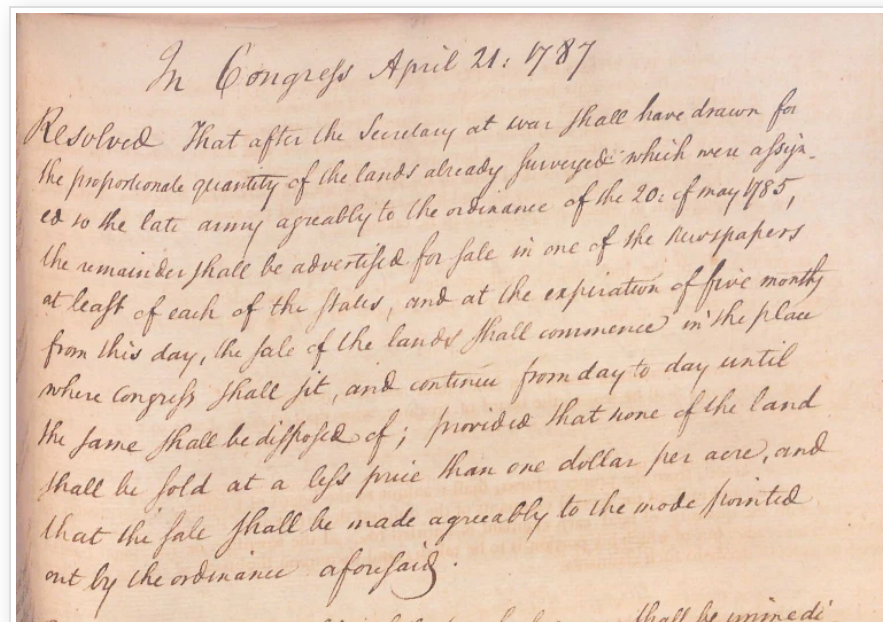 In Congress April 21: 1787
Resolved That after the Secretary at war shall have drawn for
the proportionate quantity of the lands already surveyed which were assign-
ed to the late army agreably to the ordinance of the 20: of may 1785,
the remainder shall be advertised for sale in one of the Newspapers
at least of each of the states, and at the expiration of five months
from this day, the sale of the lands shall commence in the place
where Congress shall sit, and continue from day to day until
the same shall be disposed of; provided that none of the land
shall be sold at a less price than one dollar per acre, and
that the sale shall be made agreeably to the mode pointed
out by the ordinance aforesaid.
shall be immedi